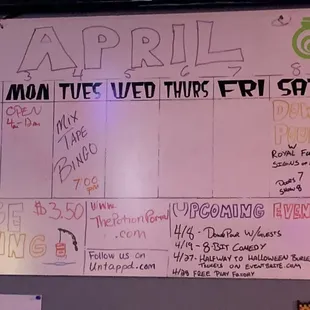 APRIL
3 4 5 6 7 8
MON TUES WED THURS FRI SA
OPEN
MIX
TAPE
BINGO
7:00
pm
ROYAL
SIGNS OF
DOORS 7
SHOW 8
$3.50
www.
ThePotionPortal
.com
Follow us on
Untappd.com
UPCOMING EVEN
4/8- W/GUESTS
4/19- 8-BIT COMEDY
4/27- HALFWAY TO HALLOWEEN
TICKETS ON EVENTBRITE.COM
4/29 FREE PLAY